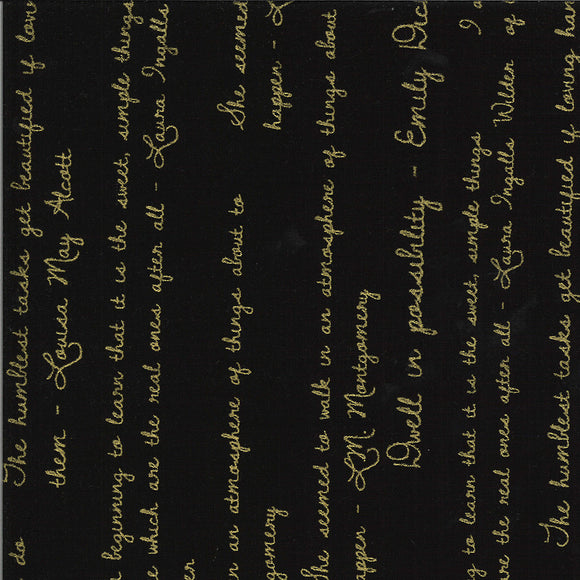 do The humblest tasks get beautified if lov
them - Louisa May Alcott
beginning to learn that it is the sweet, simple things
e which are the real ones after all - Laura Ingalls
er
n an atmosphere of things about to She seemed
gomery happen - L
She seemed to walk in an atmosphere of things about
appen - L.M. Montgomery
Dwell in possibility - Emily Dic
g to learn that it is the sweet, simple things I a
re the real ones after all - Laura Ingalls Wilder of
The humblest tasks get beautified if loving han